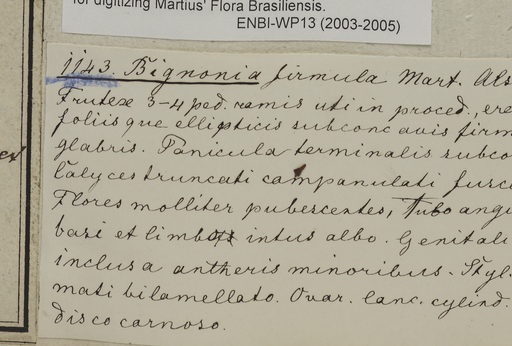 for digitizing Martius' Flora Brasiliensis.
ENBI-WP13 (2003-2005)
1143. Bignonia firmula Mart. Als
Frutex 3-4 ped. ramis uti in proced., ere
foliisque ellipticis subconcavis firm
glabris. Panicula terminalis subco
Calyces truncati campanulati fusce
Flores molliter pubescentes, Tubo angu
basi et limbo intus albo. Genitali
inclusa antheris minoribus. Styl.
mati bilamellato. Ovar. lanc. cylind.
disco carnoso.